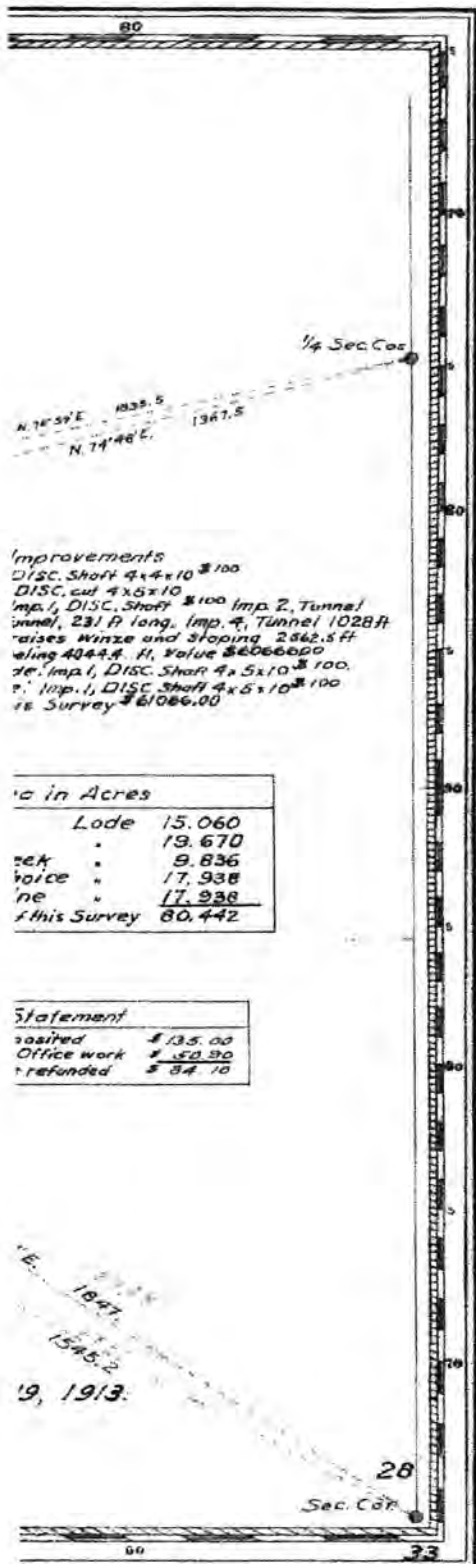 80
5
70
1/4 Sec. Cor.
5
N. 76°59'E. 1835.5
N. 74°48'E. 1367.5
80
Improvements
DISC. Shaft 4x4x10 $100
DISC. cut 4x5x10
Imp. 1, DISC. Shaft $100 Imp. 2, Tunnel
unnel, 231 ft long. Imp. 4, Tunnel 1028 ft
raises winze and stoping 2862.5 ft
eling 4044.4. ft, Value $60666.00
de: Imp. 1, DISC. Shaft 4x5x10 $100.
e: Imp. 1, DISC. Shaft 4x5x10 $100
is Survey $61066.00
5
a in Acres
90
Lode 15.060
" 19.670
eek " 9.836
hoice " 17.938
ne " 17.938
f this Survey 80.442
5
Statement
osited $135.00
Office work $50.90
refunded $84.10
80
5
E.
1847.
1545.2
70
9, 1913.
28
Sec. Cor.
80
33